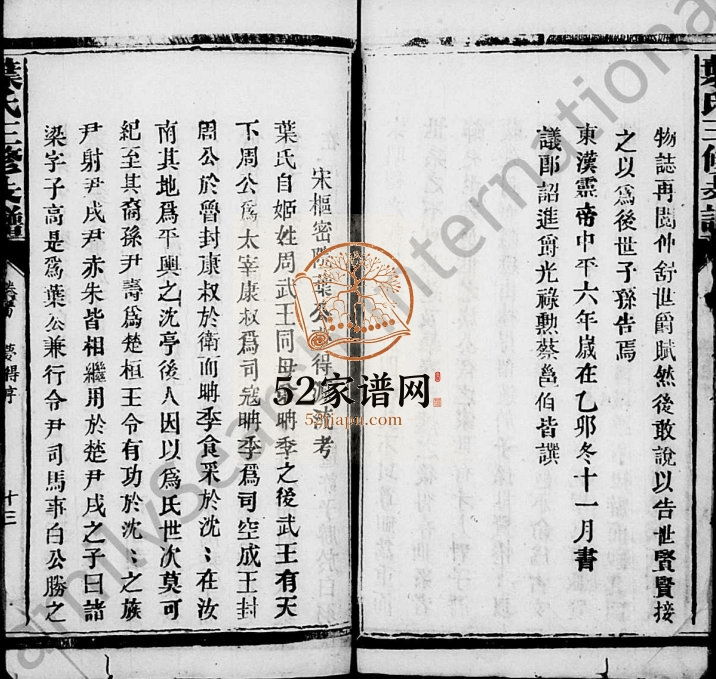 物誌再閱仲舒世爵賦然後敢說以告世賢賢接
之以爲後世子孫告焉
東漢霊帝中平六年歲在乙卯冬十一月書
議郎詔進爵光祿勲蔡邕伯喈譔
宋樞密院葉公夢得源流考
葉氏自姬姓周武王同母弟聃季之後武王有天
下周公爲太宰康叔爲司寇聃季爲司空成王封
周公於魯封康叔於衛而聃季食采於沈〻在汝
南其地爲平輿之沈亭後人因以爲氏世次莫可
紀至其裔孫尹壽爲楚桓王令有功於沈〻之族
尹射尹戌尹赤朱皆相繼用於楚尹戌之子曰諸
梁字子高是爲葉公兼行令尹司馬事白公勝之
葉氏三修支譜
夢得序
十三
葉氏三修支譜
52家谱网
www.52jiapu.com
FamilySearch International